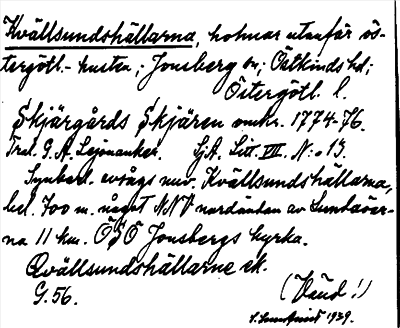 Kvällsundshällarna, holmar utanför ös-
tergötl.- kusten; Jonsberg sn; Östkinds hd;
Östergötl. l.
Skjärgårds Skjären omkr. 1774-76.
Trol. G. A. Lejonanker. SjA. Litt. VII. N:o 19.
Synberl. avsågs nuv. Kvällsundshällarna,
bel. 700 m. något NNV nordändan av Lundaöar-
na 11 km. ÖSÖ Jonsbergs kyrka.
Qvällsundshällarne ek.
G. 56. (Vänd!)
1939.